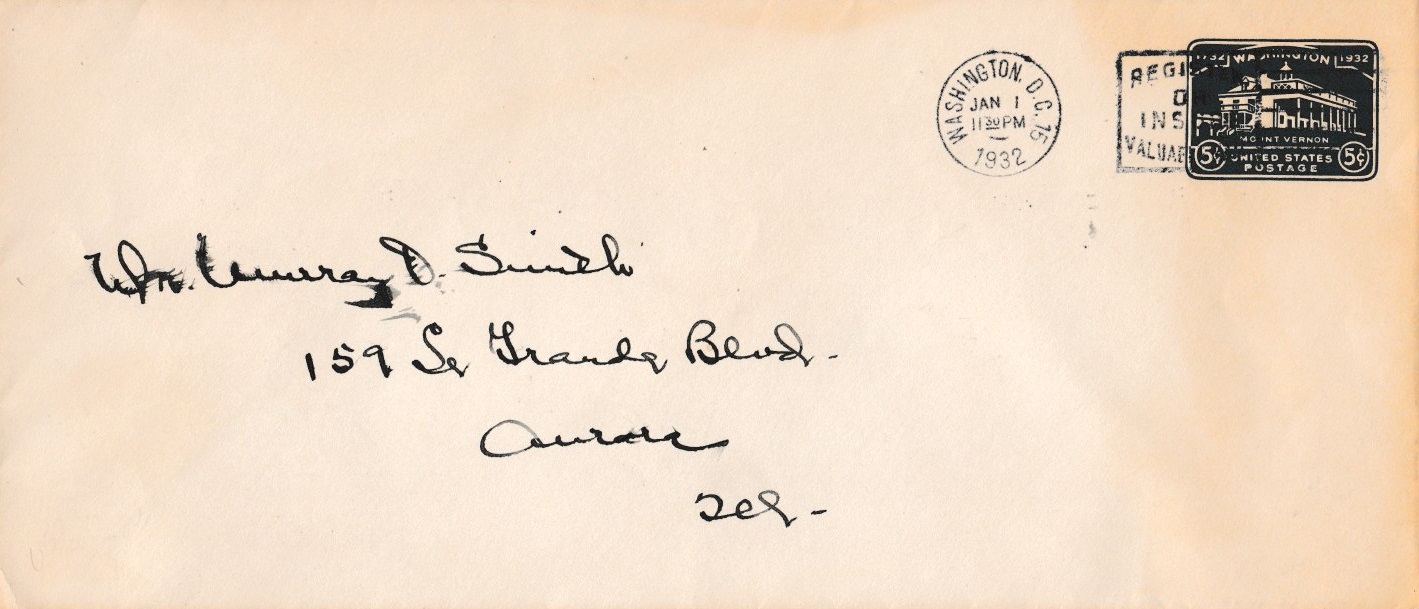 WASHINGTON, D.C. 15
JAN 1
11 30 PM
1932
REGISTER
OR
INS
VALUAB
1732 WASHINGTON 1932
MOUNT VERNON
5¢ UNITED STATES 5¢
POSTAGE
Mr. Murray D. Smith
159 Le Grande Blvd.
Aurora
Ill.